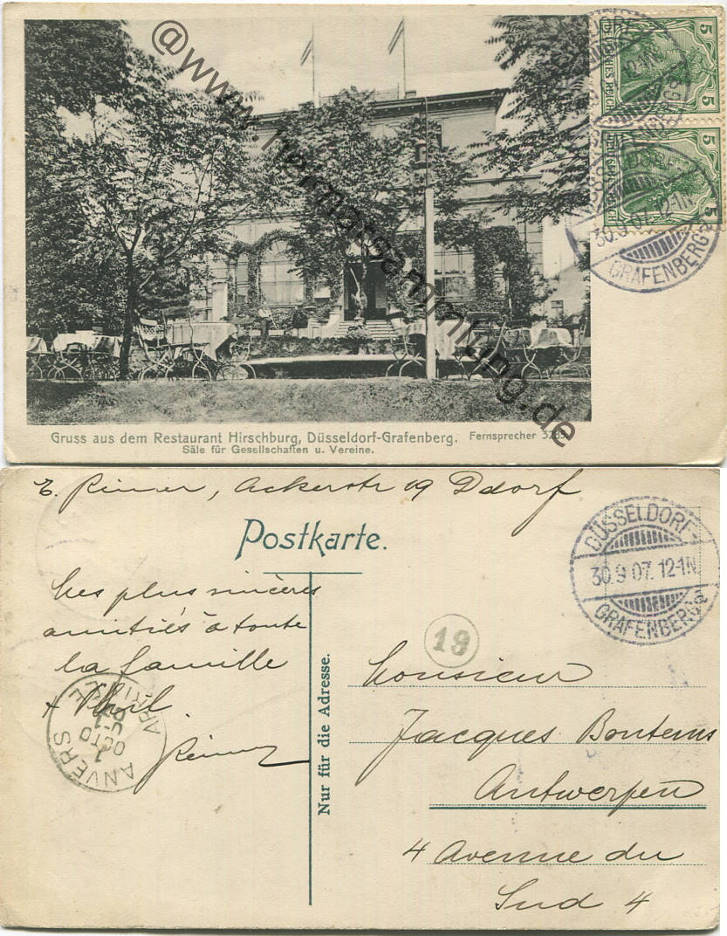 @www.hermann-sammlung.de
DEUTSCHES REICH
5
5
DEUTSCHES REICH
5
5
30.9.07. 12-1N.
GRAFENBERG
Gruss aus dem Restaurant Hirschburg, Düsseldorf-Grafenberg. Fernsprecher
Säle für Gesellschaften u. Vereine.
E. Reimer, Ackerstr 19 Ddorf
Postkarte.
DÜSSELDORF-
30.9.07. 12-1N.
GRAFENBERG a
Les plus sincères
amitiés à toute
la famille
+ Phil.
Reimer
ANVERS
1
OCTO
19
Nur für die Adresse.
Monsieur
Jacques Bontems
Antwerpen
4 Avenue du
Sud 4